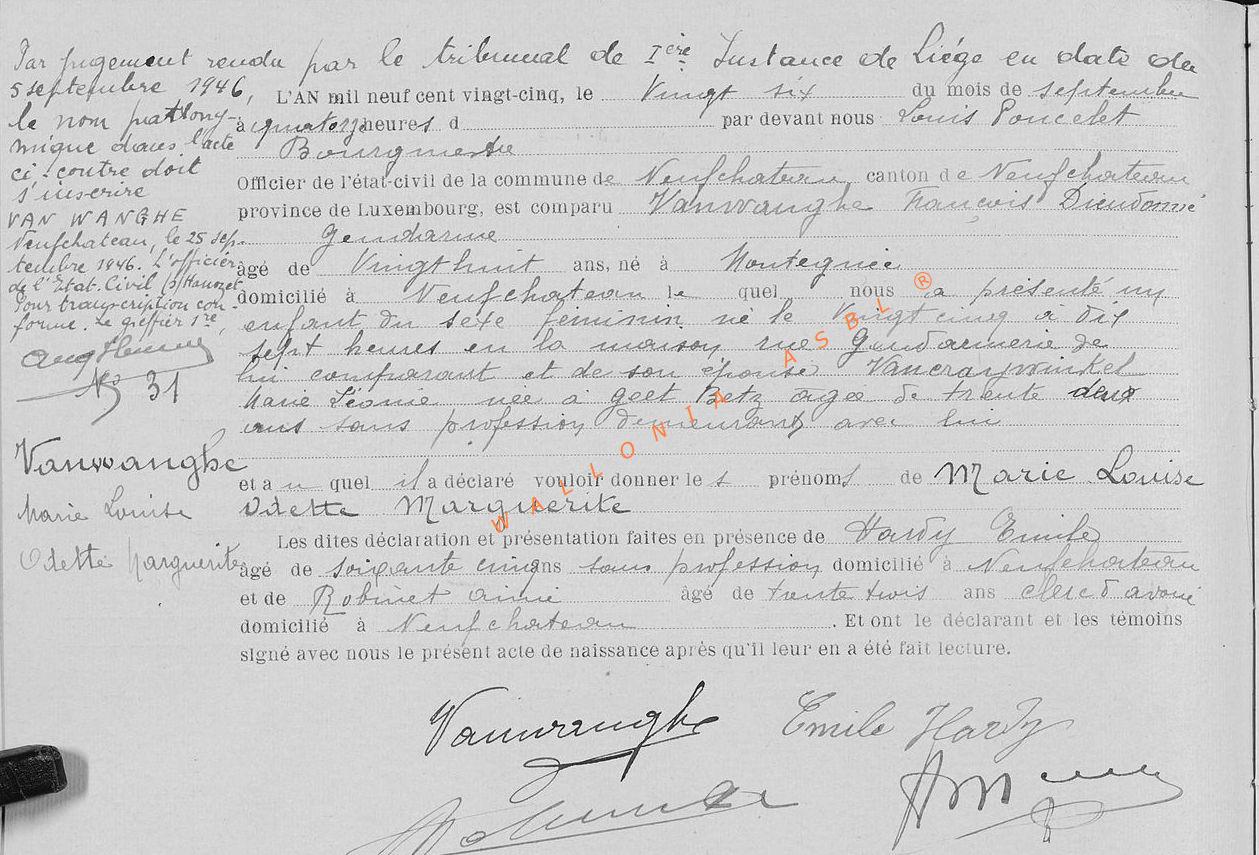 Par jugement rendu par le tribunal de Ière Instance de Liége en date du
5 septembre 1946,
le nom patrony-
mique dans l'acte
ci-contre doit
s'inscrire
VAN WANGHE
Neufchateau, le 25 sep-
tembre 1946. L'officier
de l'Etat-Civil (s) Hanozet
Pour transcription con-
forme. Le greffier 1re,
No 31
Vanwanghe
Marie Louise
Odette Marguerite
L'AN mil neuf cent vingt-cinq, le Vingt six du mois de septembre
à quatorze heures d par devant nous Louis Poncelet
Bourgmestre
Officier de l'état-civil de la commune de Neufchateau canton de Neufchateau
province de Luxembourg, est comparu Vanwanghe François Dieudonné
Gendarme
âgé de Vingt huit ans, né à Montegnée
domicilié à Neufchateau lequel nous a présenté un
enfant du sexe feminin né le Vingt cinq a dix
sept heures en la maison rue Gendarmerie de
lui comparant et de son épouse Vancraywinkel
Marie Léonie née a Geet Betz agée de trente deux
ans sans profession demeurant avec lui
et au quel il a déclaré vouloir donner les prénoms de Marie Louise
Odette Marguerite
Les dites déclaration et présentation faites en présence de Hardy Emile
âgé de soixante cinq ans sans profession domicilié à Neufchateau
et de Robinet aimé âgé de trente trois ans clerc d'avoué
domicilié à Neufchateau. Et ont le déclarant et les témoins
signé avec nous le présent acte de naissance après qu'il leur en a été fait lecture.
Vanwanghe Emile Hardy
WALLONIA ASBL ®